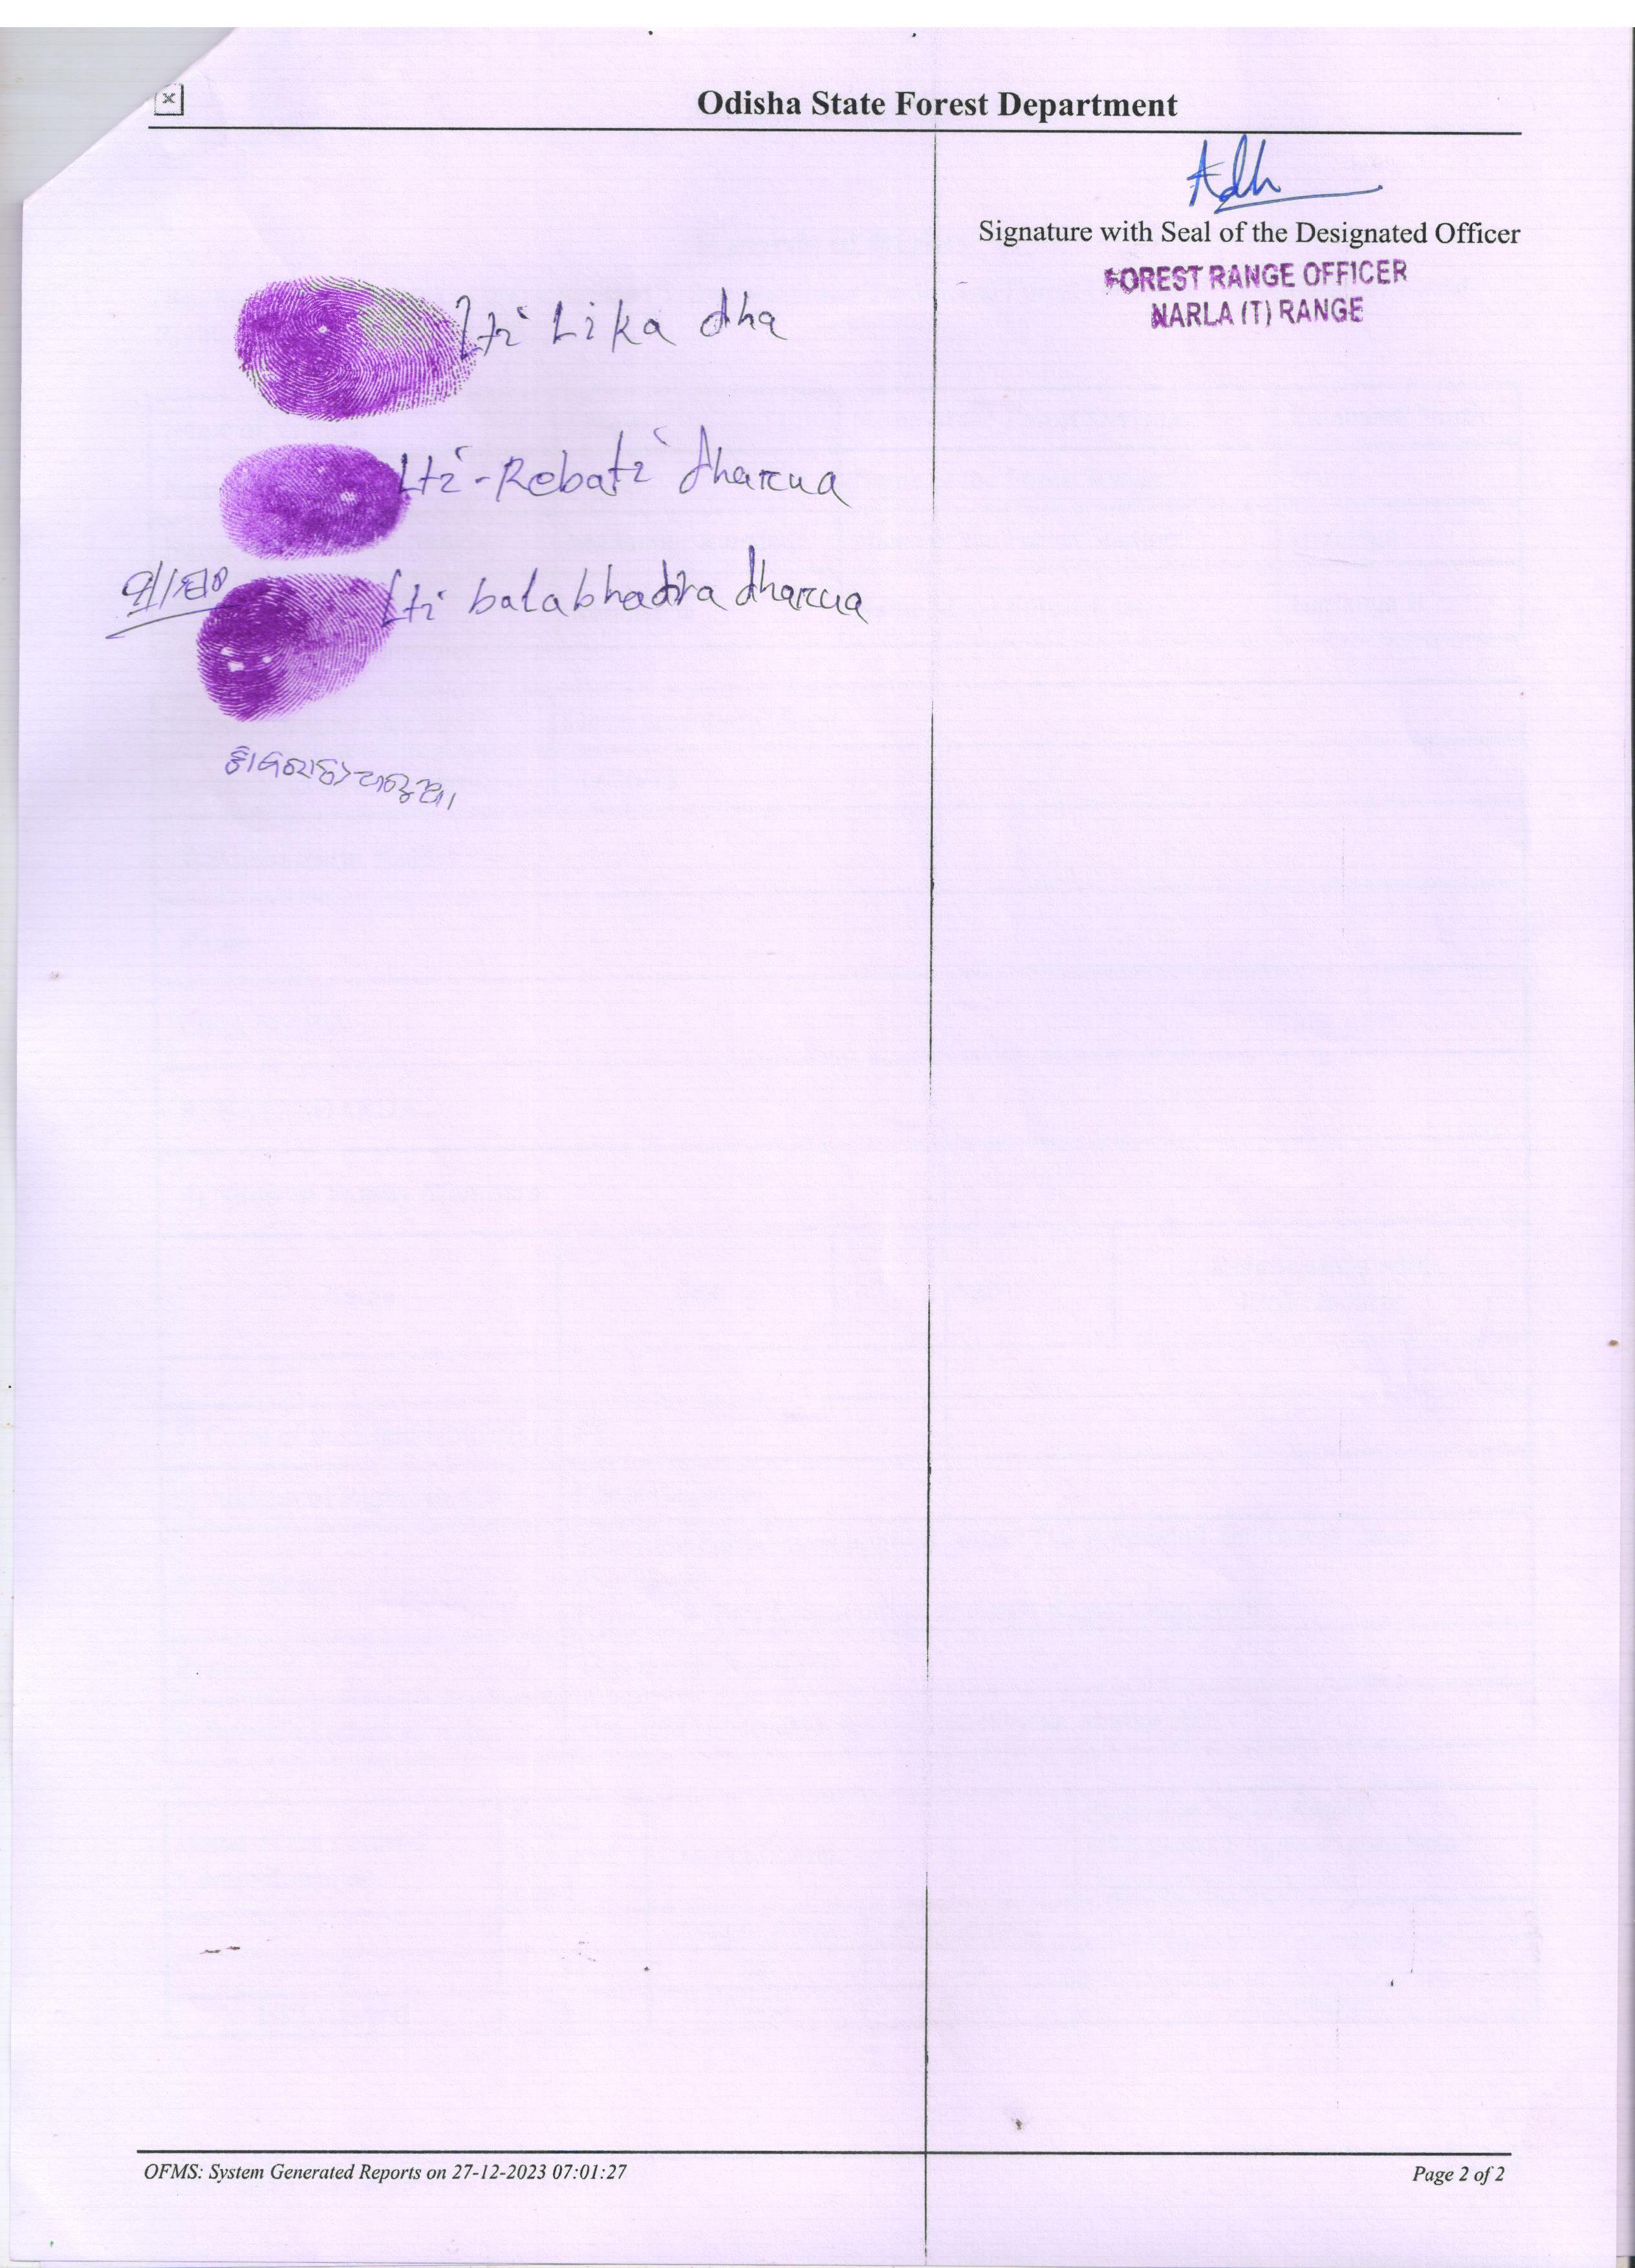 Odisha State Forest Department
Signature with Seal of the Designated Officer
FOREST RANGE OFFICER
NARLA (T) RANGE
Lti Lika dha
Lti - Rebati dharua
Lti balabhadra dharua
OFMS: System Generated Reports on 27-12-2023 07:01:27
Page 2 of 2